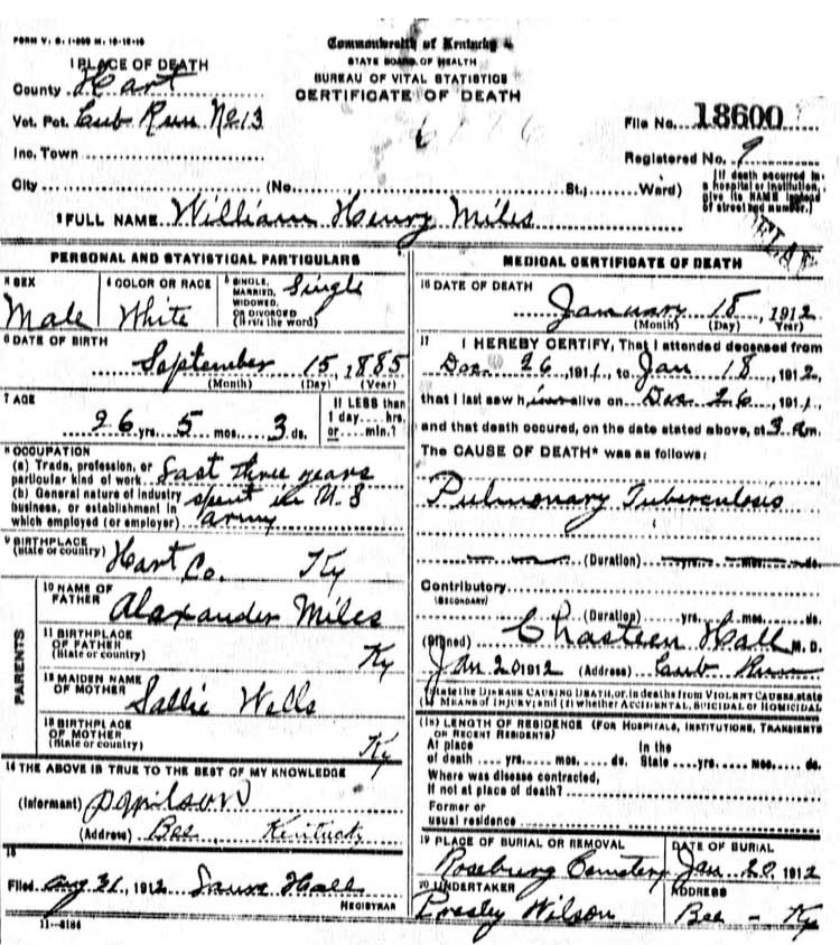 FORM V. S. 1-
Commonwealth of Kentucky
STATE BOARD OF HEALTH
BUREAU OF VITAL STATISTICS
CERTIFICATE OF DEATH
1 PLACE OF DEATH
County Hart
Vot. Pct. Cub Run No 13
Inc. Town
City (No. St.; Ward)
File No. 18600
Registered No. 9
[If death occurred in a hospital or institution, give its NAME instead of street and number.]
2 FULL NAME William Henry Miles
PERSONAL AND STATISTICAL PARTICULARS
3 SEX Male
4 COLOR OR RACE White
5 SINGLE, MARRIED, WIDOWED, OR DIVORCED (Write the word) Single
6 DATE OF BIRTH
September 15, 1885
(Month) (Day) (Year)
7 AGE
26 yrs. 5 mos. 3 ds.
If LESS than 1 day.... hrs. or.... min.?
8 OCCUPATION
(a) Trade, profession, or particular kind of work Last three years
(b) General nature of industry business, or establishment in which employed (or employer) spent in U.S army
9 BIRTHPLACE (State or country) Hart Co. Ky
PARENTS
10 NAME OF FATHER Alaxander Miles
11 BIRTHPLACE OF FATHER (State or country) Ky
12 MAIDEN NAME OF MOTHER Sallie Wells
13 BIRTHPLACE OF MOTHER (State or country) Ky
14 THE ABOVE IS TRUE TO THE BEST OF MY KNOWLEDGE
(Informant) Wilson
(Address) Bee Kentucky
15
Filed Aug 31, 1912 Hall
REGISTRAR
11-6184
MEDICAL CERTIFICATE OF DEATH
16 DATE OF DEATH
January 18, 1912
(Month) (Day) Year)
17 I HEREBY CERTIFY, That I attended deceased from
Dec. 26, 1911, to Jan 18, 1912,
that I last saw him alive on Dec 26, 1911,
and that death occured, on the date stated above, at 3 a.m.
The CAUSE OF DEATH* was as follows:
Pulmonary Tuberculosis
(Duration) yrs. mos. ds.
Contributory
(SECONDARY)
(Duration) yrs. mos. ds.
(Signed) Chasteen Hall M. D.
Jan 20 1912 (Address) Cub Run
*State the DISEASE CAUSING DEATH, or, in deaths from VIOLENT CAUSES, state (1) MEANS OF INJURY; and (2) whether ACCIDENTAL, SUICIDAL or HOMICIDAL
(18) LENGTH OF RESIDENCE (FOR HOSPITALS, INSTITUTIONS, TRANSIENTS OR RECENT RESIDENTS)
At place of death .... yrs.... mos.... ds. In the State ....yrs..... mos..... ds.
Where was disease contracted, if not at place of death?
Former or usual residence
19 PLACE OF BURIAL OR REMOVAL
Roseburg Cemetery
DATE OF BURIAL
Jan. 20, 1912
20 UNDERTAKER
Presley Wilson
ADDRESS
Bee - Ky